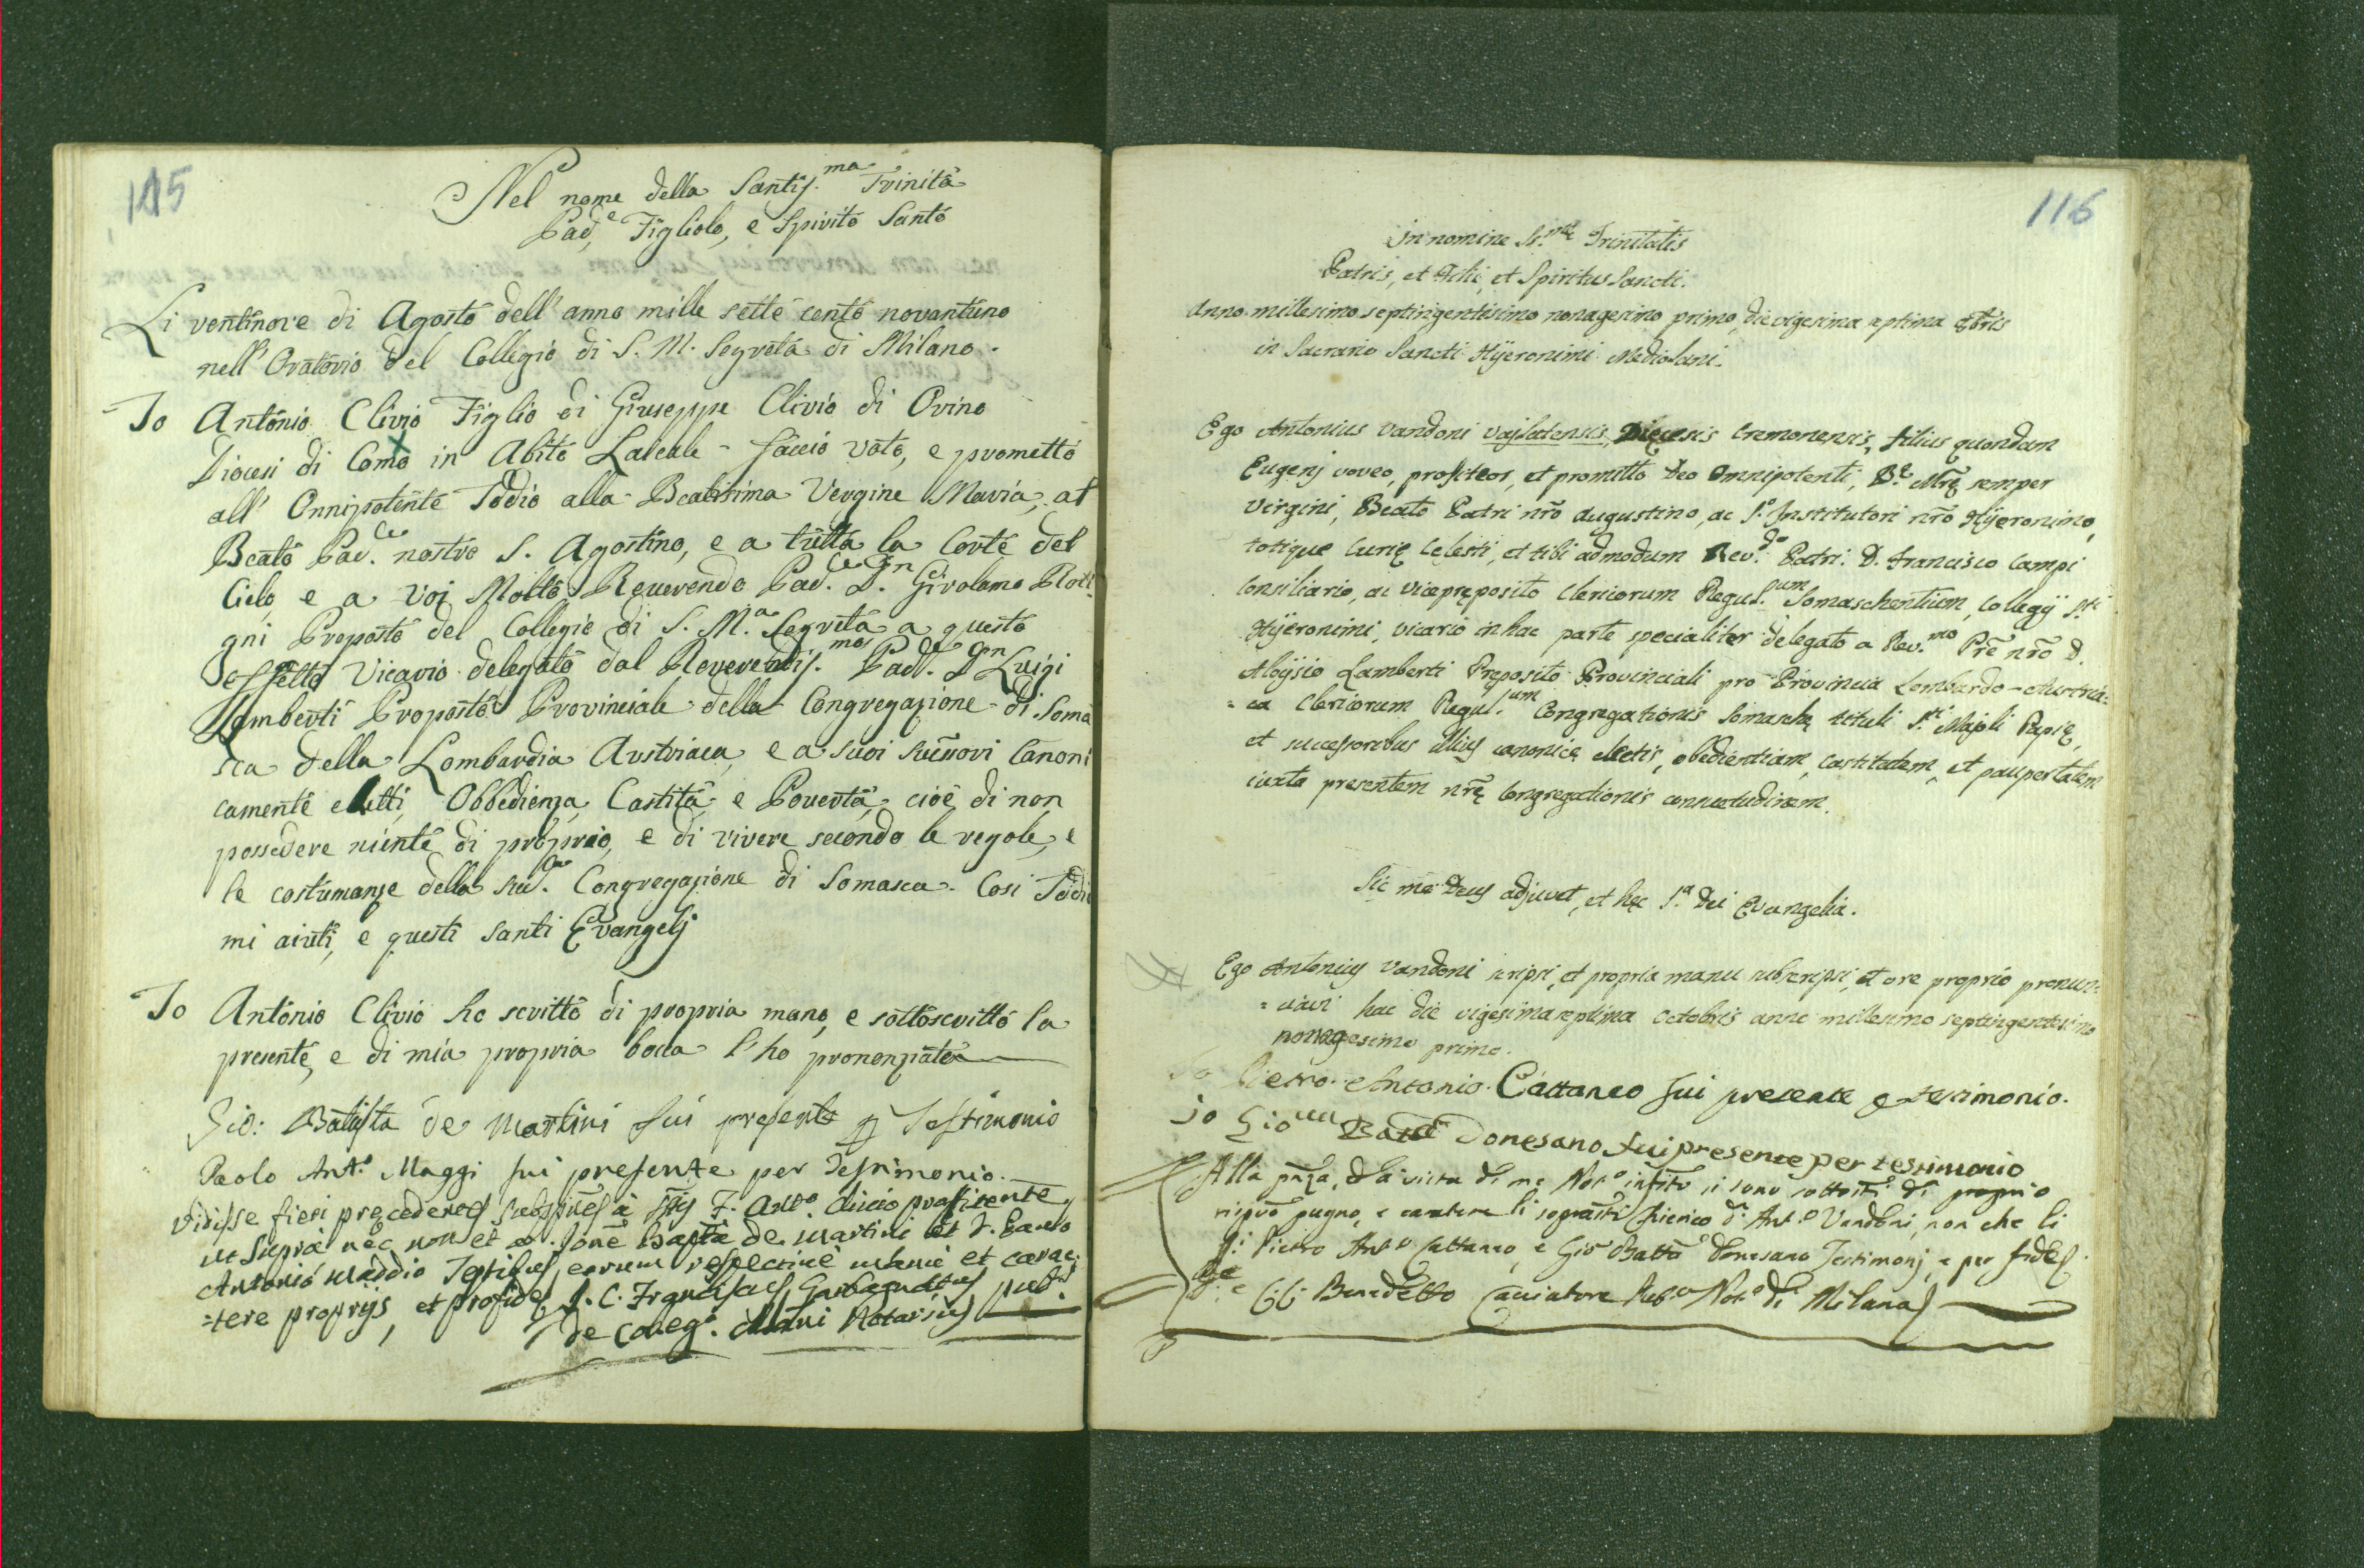 115
Nel nome della Santis.ma Trinità
Pad.e, Figliolo, e Spirito Santo
Li ventinove di Agosto dell'anno mille sette cento novantuno
nell'Oratorio del Collegio di S. M. Segreta di Milano.
Io Antonio Clivio Figlio di Giuseppe Clivio di Orino
Diocesi di Como in Abito Laicale faccio voto, e prometto
all'Onnipotente Iddio alla Beatissima Vergine Maria, al
Beato Pad.e nostro S. Agostino, e a tutta la Corte del
Cielo, e a voi Molto Reverendo Pad.e D.n Girolamo
gni Proposto del Collegio di S. M.a Segreta a questo
effetto Vicario delegato dal Reverendis.mo Pad.e D.n Luigi
Lamberti Proposto Provinciale della Congregazione di Soma
sca della Lombardia Austriaca, e a suoi Canoni
camente eletti, Obbedienza, Castità, e Povertà, cioè di non
possedere niente di proprio, e di vivere secondo le regole, e
le costumanze della Congregazione di Somasca. Così Iddio
mi aiuti, e questi santi Evangelj
Io Antonio Clivio ho scritto di propria mano, e sottoscritto la
presente, e di mia propria bocca l'ho pronenziata
Gio: Batista de Martini fui presente per Testimonio
Paolo Ant.o Maggi fui presente per Testimonio.
Vidisse fieri precedentes à F. Ant.o Clivio profitente
ut supra nec non et Bapta de Martini et D. Paulo
Antonio Madio Testibus, eorum respective manu et carac:
=tere proprijs, et pro fide J. C. Franciscus Garbagnatus pub.s
de Coleg.o Notarius
116
In nomine SS.mæ Trinitatis
Patris, et Filii, et Spiritus Sancti.
Anno millesimo septingentesimo nonagesimo primo, die vigesima septima 8bris
in Sacrario Sancti Hÿeronimi Mediolani.
Ego Antonius Vandoni Vajlatensis, Diœcesis Cremonensis, filius quondam
Eugenj voveo, profiteor, et promitto Deo Omnipotenti, B.ę Mrę semper
Virgini, Beato Patri nr̃o Augustino, ac S.o Institutori nr̃o Hÿeronimo,
totique Curię Celesti, et tibi admodum Rev.do Patri D. Francisco Campi
Consiliario, ac Viceprępósito Clericorum Regul.rum Somaschentium, Collegÿ S.ti
Hÿeronimi, vicario in hac parte specialiter delegato a Rev.mo Pr̃e nr̃o D.
Aloÿsio Lamberti Pręposito Provinciali pro Provincia Lombardo-Austria=
=ca Clericorum Regul.rum Congregationis Somaschę tituli S.ti Majoli Papię,
et successoribus illius canonicę electis, obedientiam, castitatem, et paupertatem
iuxta presentem nr̃ę Congregationis consuetudinem.
Sic me Deus adjuvet, et hęc S.a Dei Evangelia.
Ego Antonius Vandoni scripsi, et propria manu subscripsi, et ore proprio pronun=
=ciavi hac die vigesima septima Octobris anni millesimo septingentesimo
nonagesimo primo.
Io Pietro Antonio Cattaneo fui presente per testimonio.
Io Gio Batta Donesano fui presente per testimonio
Alla pñza, ed a vista di me Not.o si sono sottoscti di proprio
pugno, e carattere li Chierico D. Ant.o Vandoni, non che li
Pietro Ant.o Cattaneo, e Gio Batta Donesano Testimonj, e per fede
Benedetto Cacciatore Pub.o Not.o di Milano